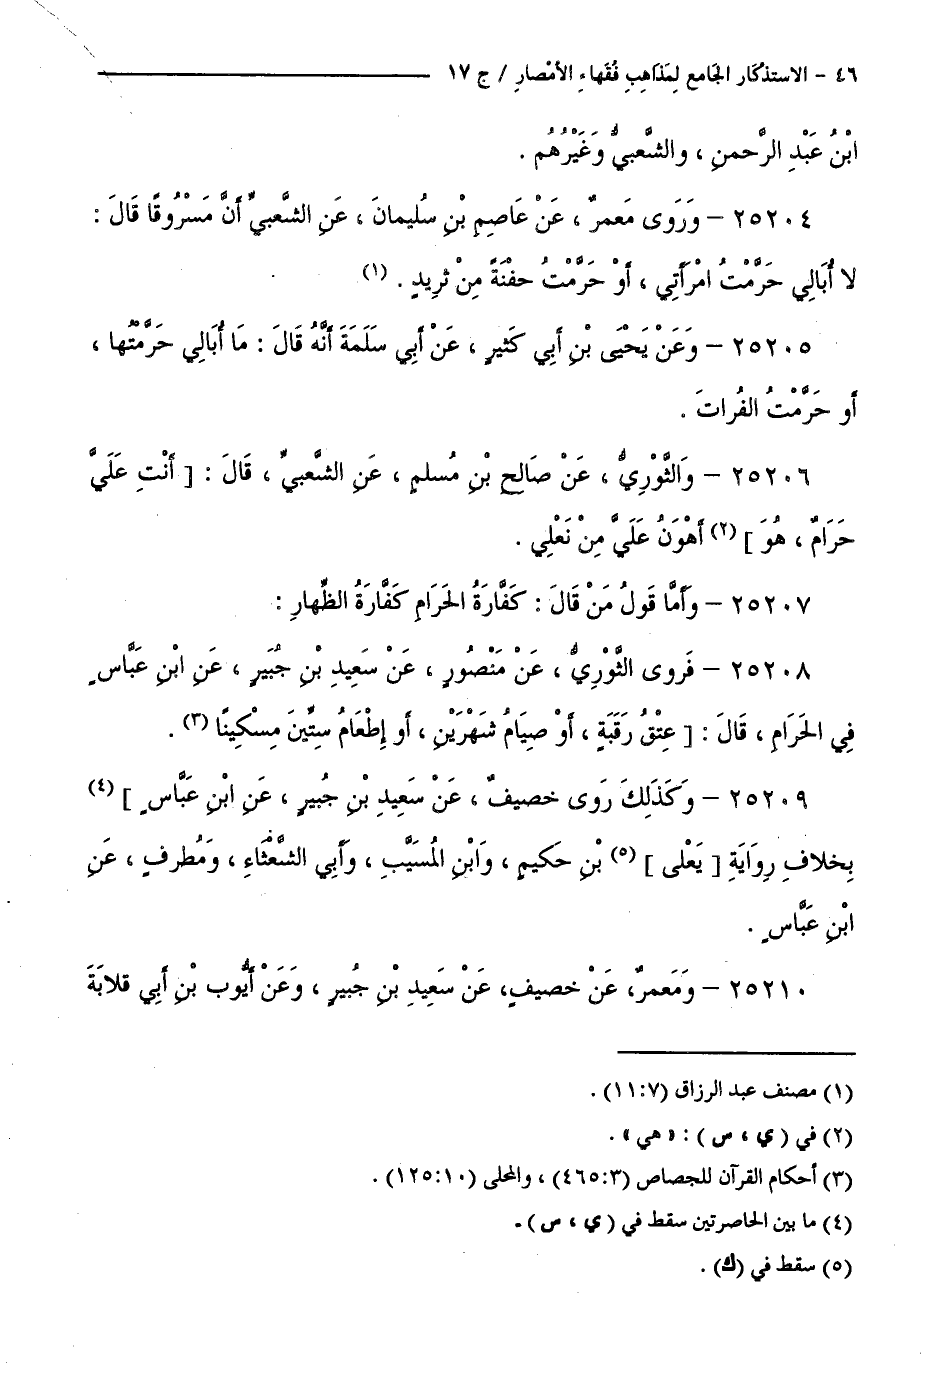 ٤٦ - الاستذكار الجامع لِمَذاهِبِ فُقَهاءِ الأمْصارِ / ج ١٧
ابْنُ عَبْدِ الرَّحمنِ ، والشَّعبيُّ وَغَيْرُهُم .
٢٥٢٠٤ – وَرَوى مَعمرٌ ، عَنْ عَاصِمِ بْنِ سُليمانَ ، عَنِ الشَّعبيِّ أَنَّ مَسْرُوقًا قَالَ :
لا أُبَالِي حَرَّمْتُ امْرَأتِي ، أَوْ حَرَّمْتُ حفْنَةً مِنْ ثَرِيدٍ . (١)
٢٥٢٠٥ – وَعَنْ يَحْيَى بْنِ أَبي كَثيرٍ ، عَنْ أَبي سَلَمَةَ أَنَّهُ قَالَ : مَا أُبَالِي حَرَّمْتُها ،
أو حَرَّمْتُ الفُراتَ .
٢٥٢٠٦ – وَالثَّوْرِيُّ ، عَنْ صَالحِ بْنِ مُسلمٍ ، عَنِ الشَّعبيِّ ، قَالَ : [ أَنْتِ عَلَيَّ
حَرَامٌ ، هُوَ ] (٢) أَهْوَنُ عَلَيَّ مِنْ نَعْلِي .
٢٥٢٠٧ – وأمَّا قَولُ مَنْ قَالَ : كَفَّارَةُ الحَرامِ كَفَّارَةُ الظِّهارِ :
٢٥٢٠٨ – فَروى الثَّوْرِيُّ ، عَنْ مَنْصُورٍ ، عَنْ سَعيدِ بْنِ جُبَيرٍ ، عَنِ ابْنِ عَبَّاسٍ
فِي الحَرَامِ ، قَالَ : [ عِتْقُ رَقَبَةٍ ، أَوْ صِيَامُ شَهْرَيْنِ ، أو إِطْعَامُ سِتِّينَ مِسْكِينًا (٣) .
٢٥٢٠٩ – وَكَذَلِكَ رَوى خصيفٌ ، عَنْ سَعِيدِ بْنِ جُبيرٍ ، عَنِ ابْنِ عَبَّاسٍ ] (٤)
بِخلافِ رِوَايَةِ [ يَعْلى ] (٥) بْنِ حَكيمٍ ، وَابْنِ المُسَيَّبِ ، وَأَبي الشَّعْثَاءِ ، وَمُطرفٍ ، عَنِ
ابْنِ عَبَّاسٍ .
٢٥٢١٠ – وَمَعمرٌ، عَنْ خصيفٍ، عَنْ سَعِيدِ بْنِ جُبيرٍ ، وَعَنْ أَيُّوب بْنِ أَبِي قلابَةَ
(١) مصنف عبد الرزاق (١١:٧) .
(٢) في ( ي ، س ) : « هي » .
(٣) أحكام القرآن للجصاص (٤٦٥:٣) ، والمحلى (١٢٥:١٠) .
(٤) ما بين الحاصرتين سقط في ( ي ، س ) .
(٥) سقط في (ك) .